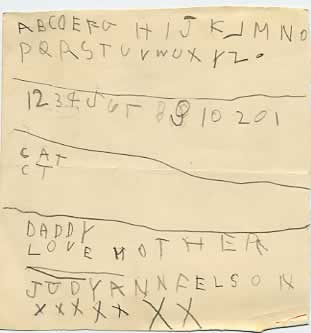 ABCDEFG HIJKLMNO
PQRSTUVWUXYZ.
12345678910 201
CAT
CT
DADDY
LOVE MOTHER
JUDYANNFELSON
XXXXX XX